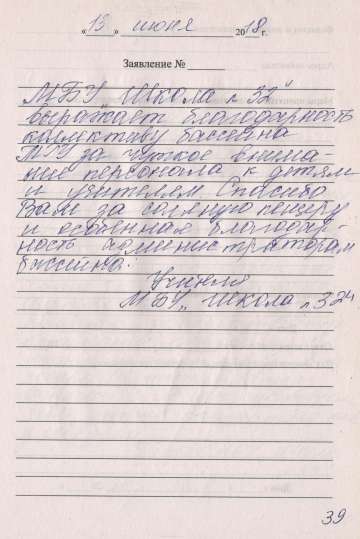 « 15 » июня 2018 г.
Заявление № ______
МБУ „Школа № 32"
выражает благодарность
коллективу бассейна
за чуткое внима-
ние персонала к детям
и учителям Спасибо
Вам за соляную пещеру
и особенная благодар-
ность администраторам
бассейна.
Учителя
МБУ „Школа № 32"
39